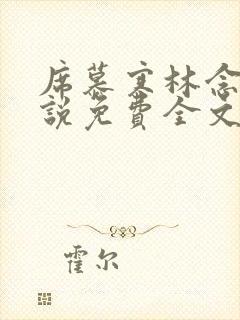 席慕寒林念
說免費全文
霍尔